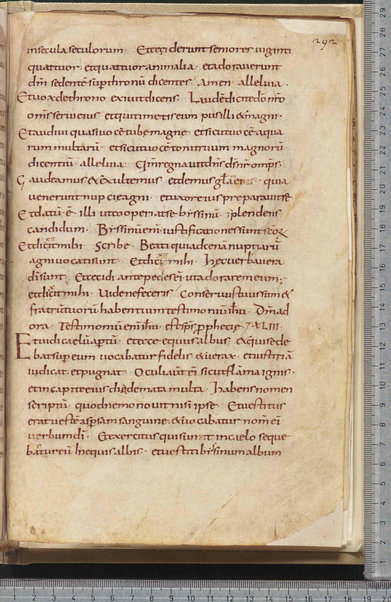 292
insecula seculorum · Et ceciderunt seniores viginti
quattuor · et quattuor animalia · et adoraverunt
dm̄ sedentē sup thronū dicentes · Amen · alleluia ·
Et vox de throno exivit dicens · Laudē dicite dō nr̄o
omīs servi eius · et qui timetis eum pusilli & magni ·
Et audivi quasi vocē tubę magnę · et sicut vocē aqua
rum multarū · et sicut vocē tonitruum magnorū
dicentiū · alleluia · Qm̄ regnavit dn̄s ds̄ nr̄ omps̄ ·
Gaudeamus & exultemus · et demus glā ei · quia
venerunt nuptię agni · et uxor eius preparavit se ·
Et datū ē · illi ut cooperiat se byssinū · splendens
candidum · Byssinū enī iustificationes sunt scōꝝ
Et dicit mihi · Scribe · Beati qui ad cenā nuptiarū
agni vocati sunt · Et dicit mihi · hęc verba vera
dī sunt · Et cecidi ante pedes eī ut adorarem eum ;
et dicit mihi · Vide ne feceris · Conservus tuus sum &
fratrū tuorū habentium testimoniū ihū · Dm̄ ad
ora · Testimoniū enī ihū · est sp̄s prophecię · XLIII
Et vidi cęlū aptū · et ecce equus albus · & qui sede
bat sup eum vocabatur fidelis & verax · et iustitiā
iudicat et pugnat · Oculi aut̄ eī sicut flāma ignis ·
et in capite eius diademata multa · habens nomen
scriptū · quod nemo novit nisi ipse · Et vestitus
erat vestē aspsam sanguine · & vocabatur nom̄ eī
verbum dī · Et exercitus qui sunt in cęlo seque
bāture ū in equis albis · et vestiti byssinum album